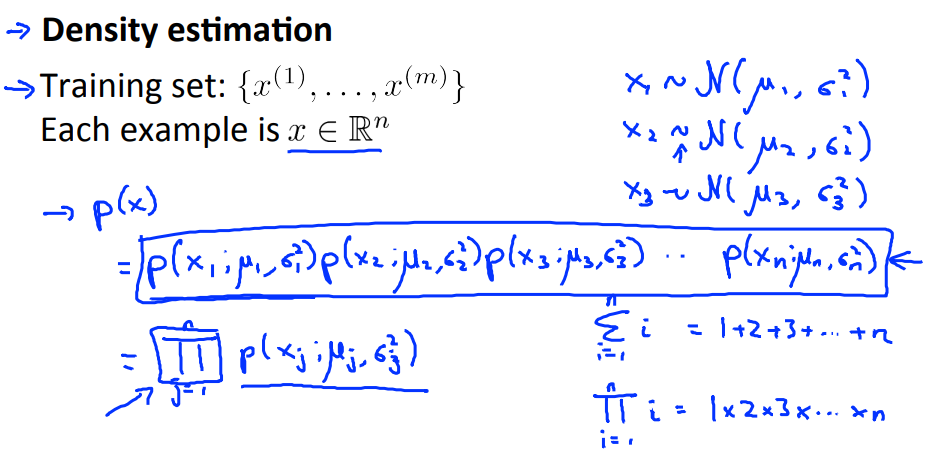 → Density estimation
→ Training set: {x^(1), . . . , x^(m)}
Each example is x ∈ ℝ^n
x₁ ~ N(μ₁, σ₁²)
x₂ ~ N(μ₂, σ₂²)
↑
x₃ ~ N(μ₃, σ₃²)
→ p(x)
= p(x₁; μ₁, σ₁²) p(x₂; μ₂, σ₂²) p(x₃; μ₃, σ₃²) ·· p(xₙ; μₙ, σₙ²) ←
= ∏_{j=1}^{n} p(xⱼ; μⱼ, σ₃²)
∑_{i=1}^{n} i = 1+2+3+...+n
∏_{i=1}^{n} i = 1×2×3×...×n